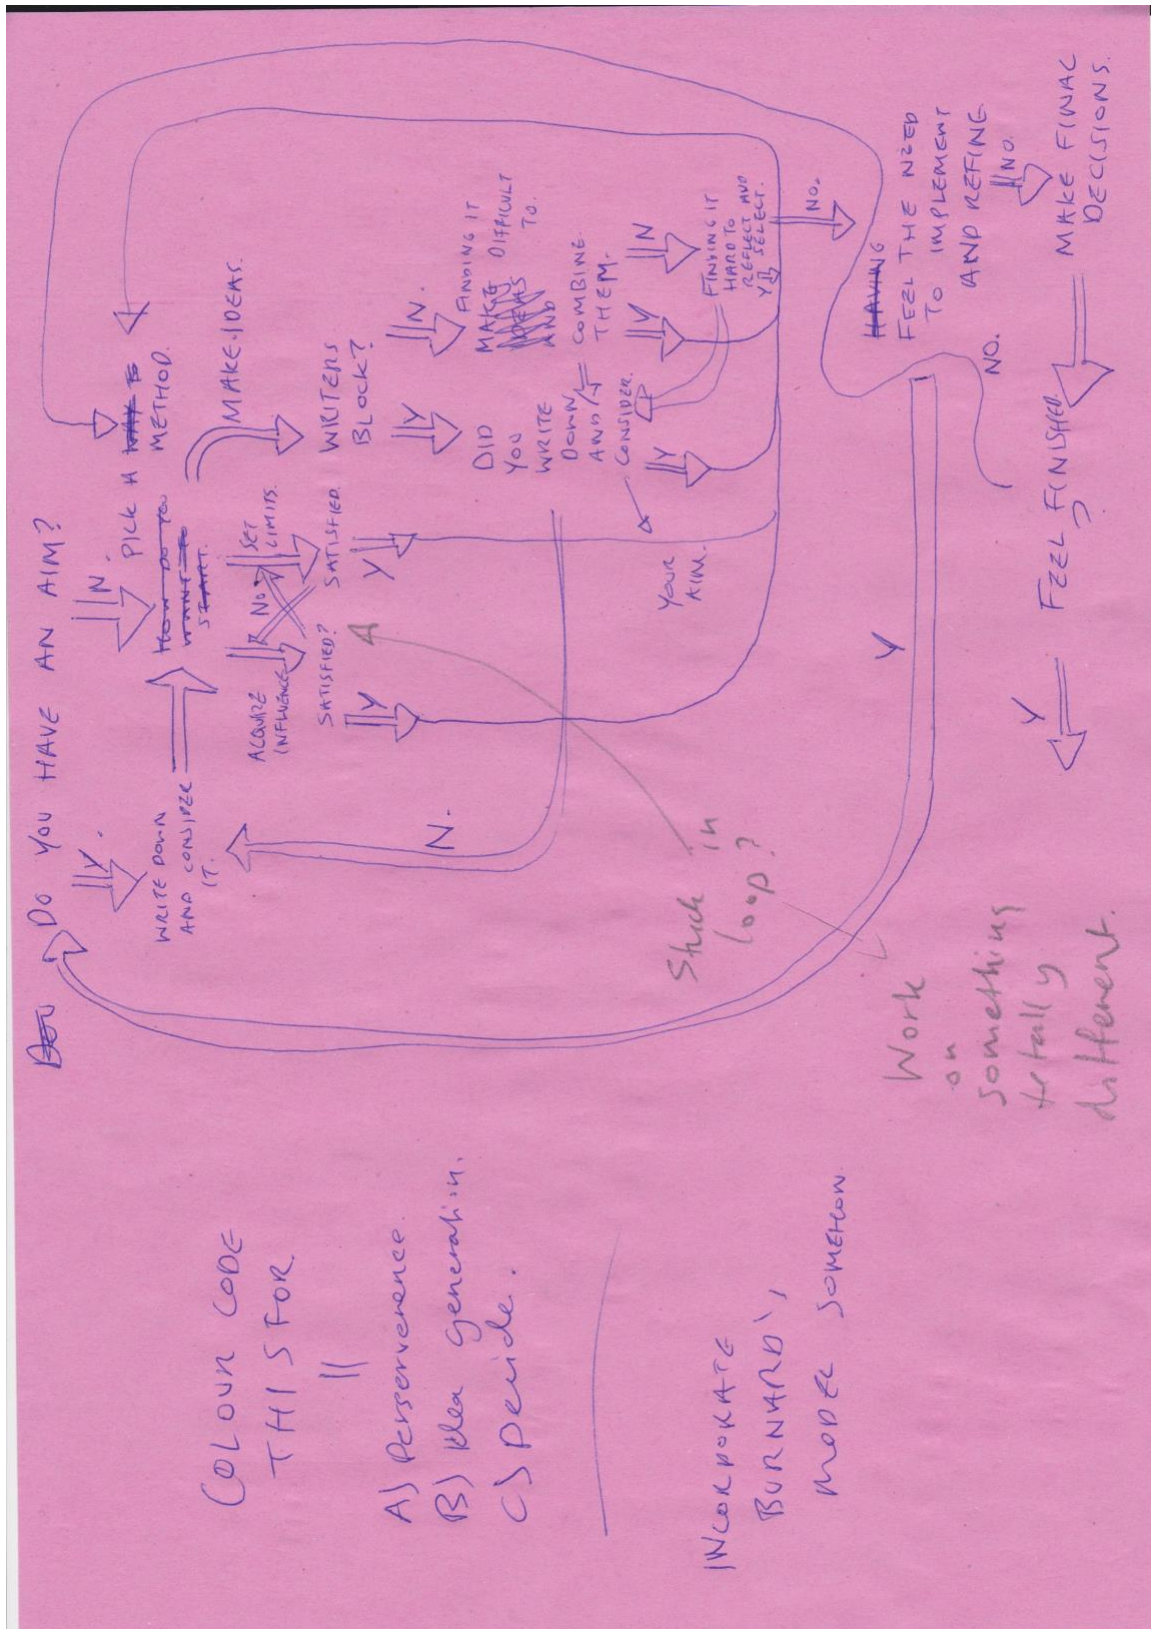 DO YOU HAVE AN AIM?
Y.
N.
WRITE DOWN
AND CONSIDER
IT.
PICK A
METHOD.
HOW DO YOU
WANT TO
START.
MAKE IDEAS.
ACQUIRE
INFLUENCE
NO
SET
LIMITS.
SATISFIED?
SATISFIED.
Y
Y
WRITERS
BLOCK?
Y
N.
DID
YOU
WRITE
DOWN
AND
CONSIDER.
YOUR
AIM.
Y
N.
FINDING IT
DIFFICULT
TO.
MAKE
IDEAS
AND
COMBINE
THEM.
Y
N
FINDING IT
HARD TO
REFLECT AND
SELECT.
Y
NO.
HAVING
FEEL THE NEED
TO IMPLEMENT
AND REFINE
Y
NO.
MAKE FINAL
DECISIONS.
FEEL FINISHED
NO.
Y
Stuck in
loop?
Work
on
something
totally
different.
COLOUR CODE
THIS FOR
A) Perserverence.
B) Idea generation.
C) Decide.
INCORPORATE
BURNARD',
MODEL SOMEHOW